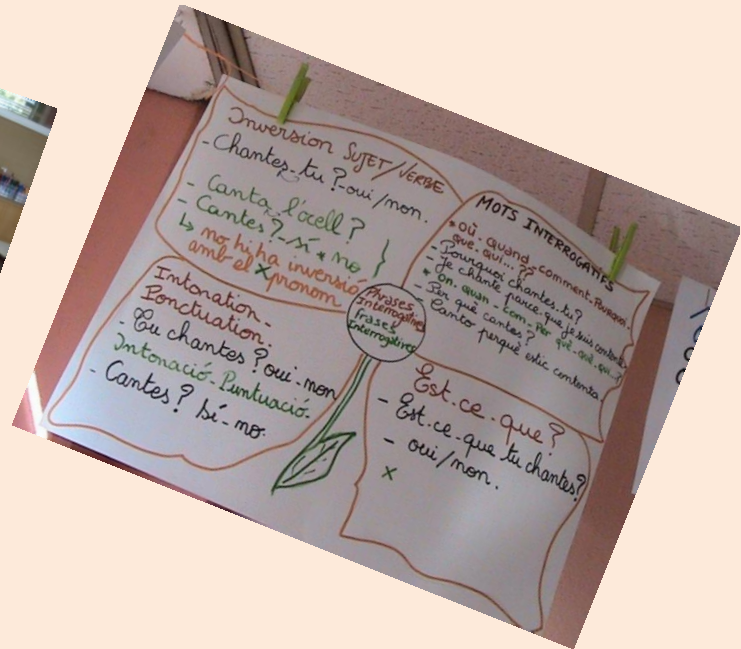 Inversion SUJET/VERBE
- Chantes-tu ? - oui/non.
- Canta l'ocell ?
- Cantes ? - sí * no
↳ no hi ha inversió
amb el x pronom
MOTS INTERROGATIFS
* où - quand - comment - Pourquoi -
que - qui... ?
- Pourquoi chantes-tu ?
- Je chante parce que je suis
* On - quan - com - Per què - què - qui... ?
- Per què cantes ?
- Canto perquè estic contenta
Phrases
Interrogatives
frases
Interrogatives
Intonation -
Ponctuation.
- Tu chantes ? oui - non
Intonació - Puntuació.
- Cantes ? Sí - no.
Est-ce-que ?
- Est-ce-que tu chantes ?
- oui/non.
x